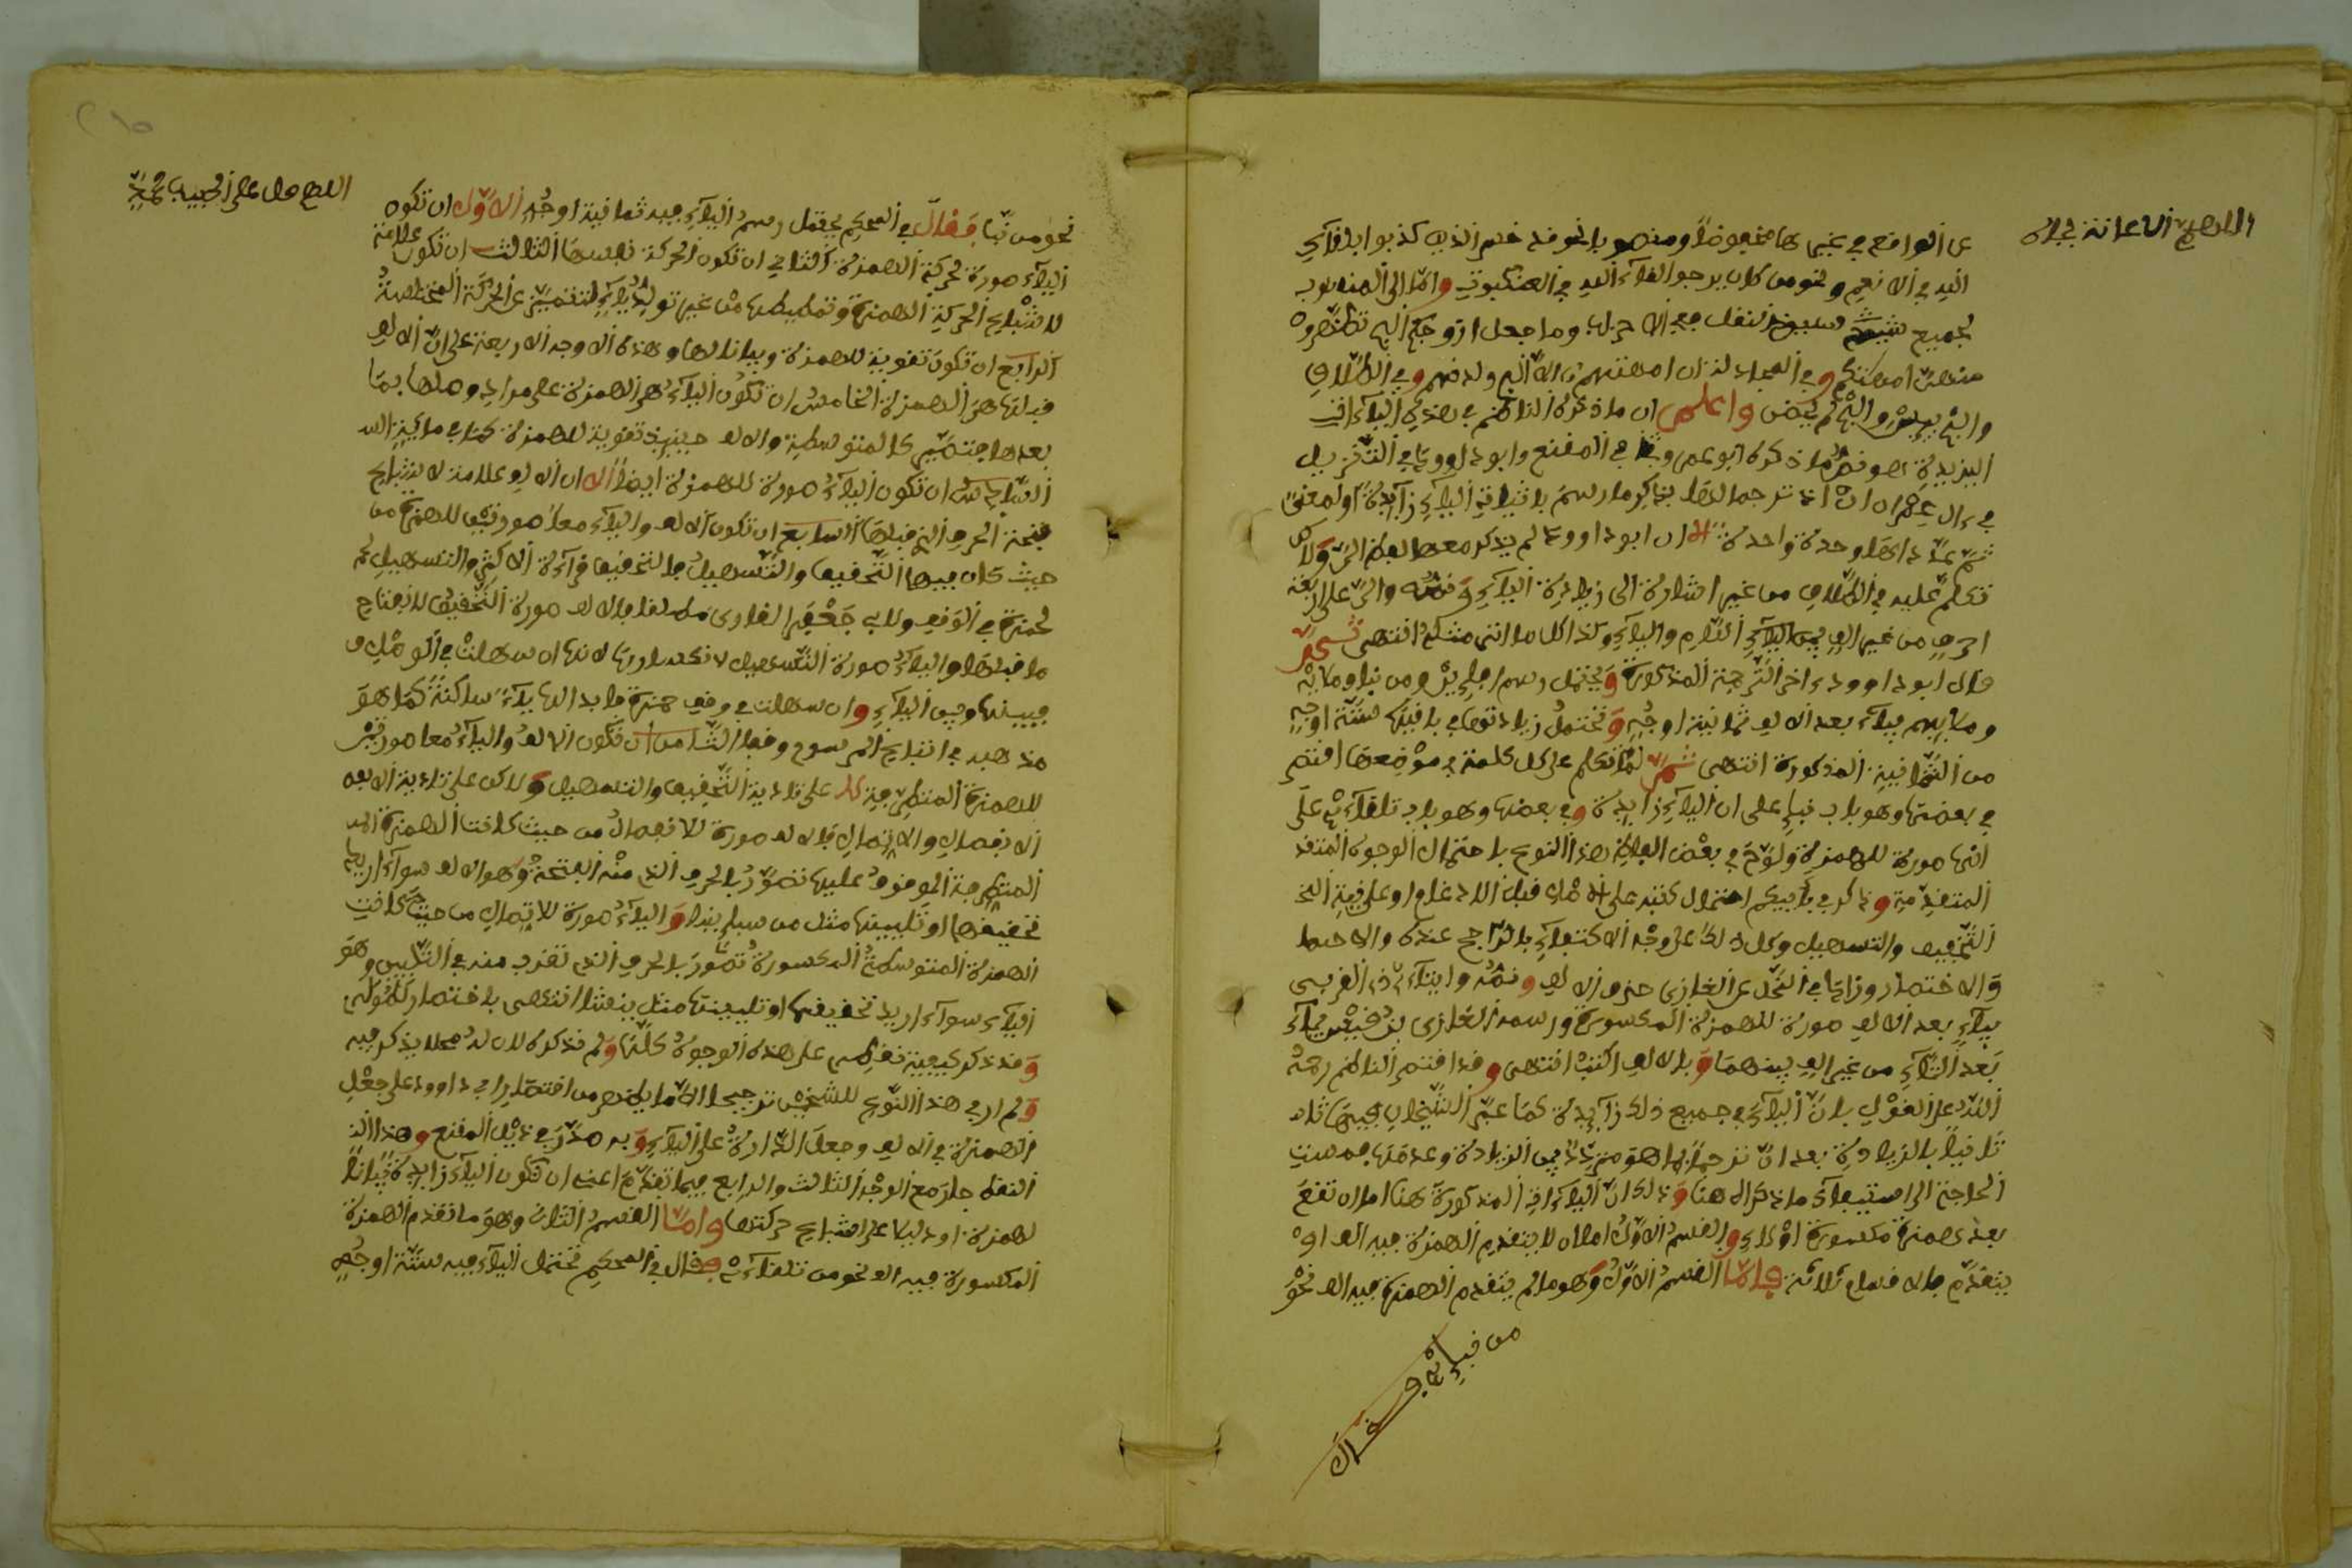 اللهم الاعانة
عن الواقع في غيرها مخفوضا ومنصوبا نحو قد خسر الذين كذبوا بلقاء
الله في الانعام ونحو من كان يرجوا لقاء الله في العنكبوت واما الى المنصوب
لجميع سبيع النقل معه الاحزاب وما جعل ازوجكم الئ تظهرون
منهن امهتكم وفي المجادلة ان امهتهم الا الئ ولدنهم وفي الطلاق
والئ يئسن والئ لم يحضن واعلم ان ما ذكره الناظم في هذه الياءات
المزيدة هو نص ما ذكره ابو عمرو في المقنع وابو داوود في التنزيل
في ءال عمران اذ ترجما لها بذكر ما رسم باثبات الياء زايدة او لمعنى
ثم عداها واحدة واحدة الا ان ابا داوود لم يذكر معها الئ ولاكن
تكلم عليه في الطلاق من غير اشارة الى زيادة الياء ونصه والئ على اربعة
احرف من غير الف بين اللام والياء وكذا كل ما اتى مثله انتهى ثم
قال ابو داوود ءاخر الترجمة المذكورة ويحتمل رسم افإين ومن نبإى وملإيه
وملإيهم بياء بعد الالف ثمانية اوجه وتحتمل زيادتها في باقيها ستة اوجه
من الثمانية المذكورة انتهى ثم لما تكلم على كل كلمة في موضعها اقتصر
في بعضها وهو باب نبإى على ان الياء زايدة وفي بعضها وهو باب تلقاءى على
انها صورة للهمزة ولوح في بعض الفاظ هذا النوع باحتمال الوجوه المتقد
المتقدمة وذكر في بأييكم احتمال كتبه على الاصل قبل الادغام او على نية
التخفيف والتسهيل وكل ذلك على وجه الاكتفاء بالراجح عنده والاحتيا
والاختصار وزاد في النحل عن الغازى حذف الالف ونصه وايتاءى ذى القربى
بياء بعد الالف صورة للهمزة المكسورة ورسمه الغازى بن قيس بياء
بعد التاء من غير الف بينهما وبالالف اكتب انتهى وقد اقتصر الناظم رحمه
الله على القول بان الياء في جميع ذلك زايدة كما عبر الشيخان
بالزيادة بعد ان ترجما لها هو متردد بين الزيادة وعدمها فمست
الحاجة الى استيفاء ما ذكراه هنا وذلك ان الياءات المذكورة هنا اما ان تقع
بعد همزة مكسورة او لا والقسم الاول اما ان لا يتقدم الهمزة فيه الف او
يتقدم فالاقسام ثلاثة فاما القسم الاول وهو ما لم يتقدم الهمزة فيه الف نحو
من نبإى
اللهم صل على الحبيب محمد
نحو من نبإى فقال في المحكم يحتمل رسم الياء فيه ثمانية اوجه الاول ان تكون
الياء صورة لحركة الهمزة الثاني ان تكون الحركة نفسها الثالث ان تكون علامة
لاشباع الحركة الهمزة وتمطيطها من غير توليد ياء لتتميز عن الحركة المختلسة
الرابع ان تكون تقوية للهمزة وبيانا لها وهذه الاوجه الاربعة على ان الالف
قبلها هي الهمزة الخامس ان تكون الياء هي الهمزة على مراد وصلها بما
بعدها فتصير كالمتوسطة والالف حينئذ تقوية للهمزة كما في مائة
السادس ان تكون الياء صورة للهمزة ايضا الا ان الالف علامة لاشباع
فتحة الحرف الذي قبلها السابع ان تكون الالف والياء معا صورتين للهمزة من
حيث كان فيها التخفيف والتسهيل فالتحقيق قراءة الاكثر والتسهيل
لحمزة في الوقف ولابي جعفر القارى مطلقا فالالف صورة التحقيق لانفتاح
ما قبلها والياء صورة التسهيل لانكسارها لانها ان سهلت في الوصل
فبينها وبين الياء وان سهلت في وقف حمزة فابدالها ياء ساكنة كما هو
مذهبه في اتباع المرسوم وقفا الثامن ان تكون الالف والياء معا صورتين
للهمزة المتطرفة لا على تادية التحقيق والتسهيل ولاكن على تادية
الانفصال والاتصال فالالف صورة للانفصال من حيث كانت الهمزة
المتطرفة الموقوف عليها تصور بالحرف الذي منه الفتحة وهو الالف سواء اريد
تحقيقها او تليينها مثل من سبإ بنبإ والياء صورة للاتصال من حيث كانت
الهمزة المتوسطة المكسورة تصور بالحرف الذي تقرب منه في التليين وهو
الياء سواء اريد تحقيقها او تليينها مثل يئس انتهى باختصار
وقد ذكر كيفية نقط على هذه الوجوه كلها ولم نذكره لان له محلا يذكر فيه
ولم ار في هذا النوع للشيخين ترجيحا الا ما يظهر من اقتصار ابي داوود على جعل
الهمزة في الالف وجعل الدارة على الياء وبه صدر في ذيل المقنع وهذا
النقط جار مع الوجه الثالث والرابع فيما تقدم اعنى ان تكون الياء زايدة بيانا
لهمزة او دليلا على اشباع حركتها واما القسم الثاني وهو ما تقدم الهمزة
المكسورة فيه الف نحو من تلقاءى فقال في المحكم تحتمل الياء فيه ستة اوجه